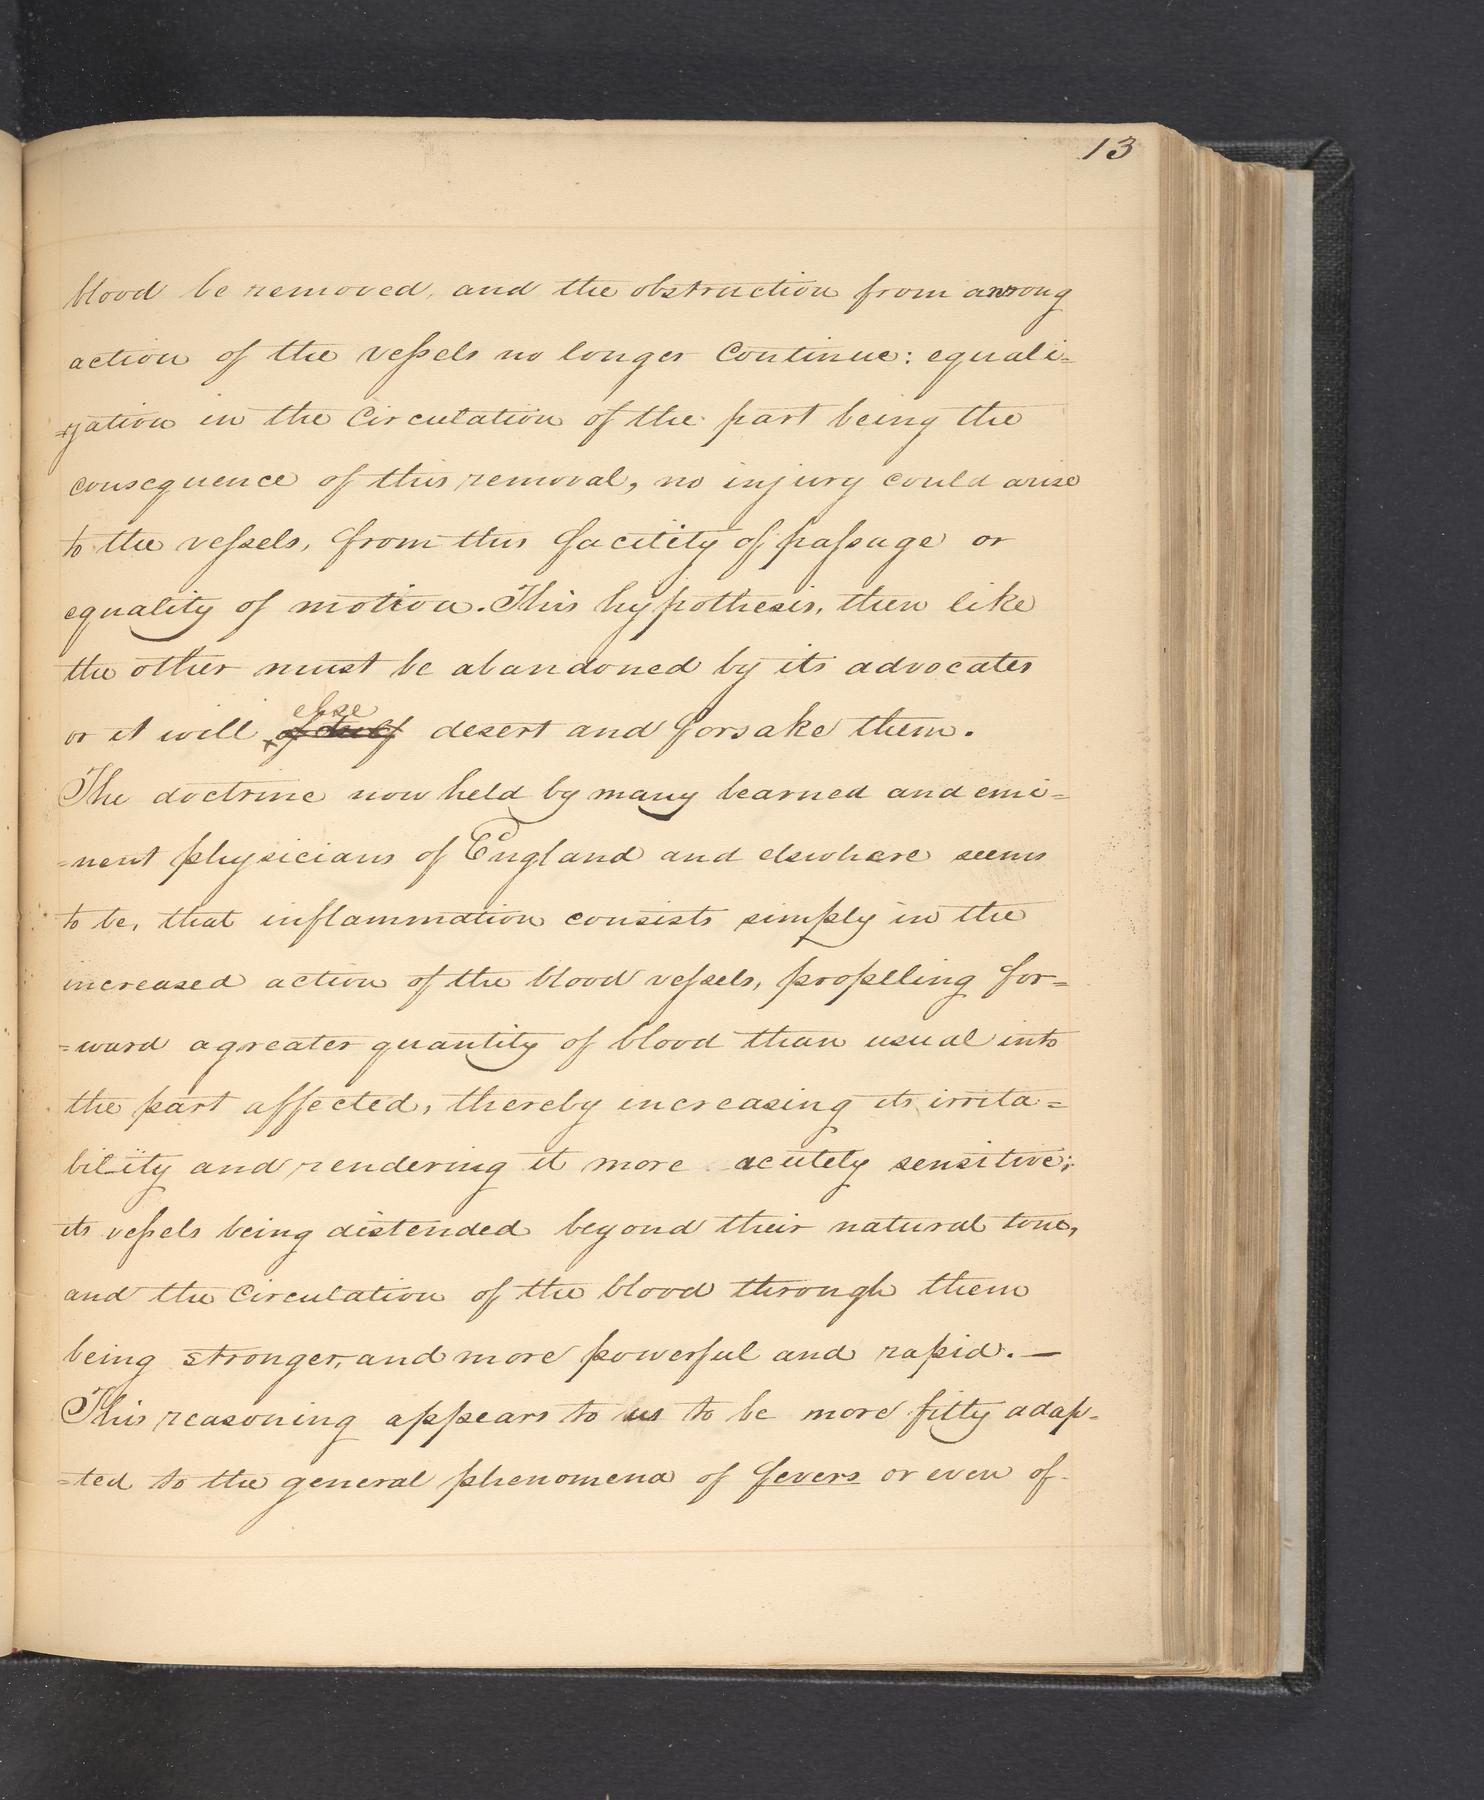 13
blood be removed, and the obstruction from a wrong
action of the vessels no longer continue: equali=
=zation in the circulation of the part being the
consequence of this removal, no injury could arise
to the vessels, from this facility of passage or
equality of motion. This hypothesis, then like
the other must be abandoned by its advocates
else
or it will desert and forsake them.
The doctrine now held by many learned and emi=
=nent physicians of England and elswhere seems
to be, that inflammation consists simply in the
increased action of the blood vessels, proplling for=
=ward a greater quantity of blood than usual into
the part affected, thereby increasing its irrita=
bility and rendering it more acutely sensitive;
its vessels being distended beyond their natural tone,
and the circulation of the blood through them
being stronger, and more powerful and rapid. —
This reasoning appears to us to be more fitly adap-
=ted to the general phenomena of fevers or even of